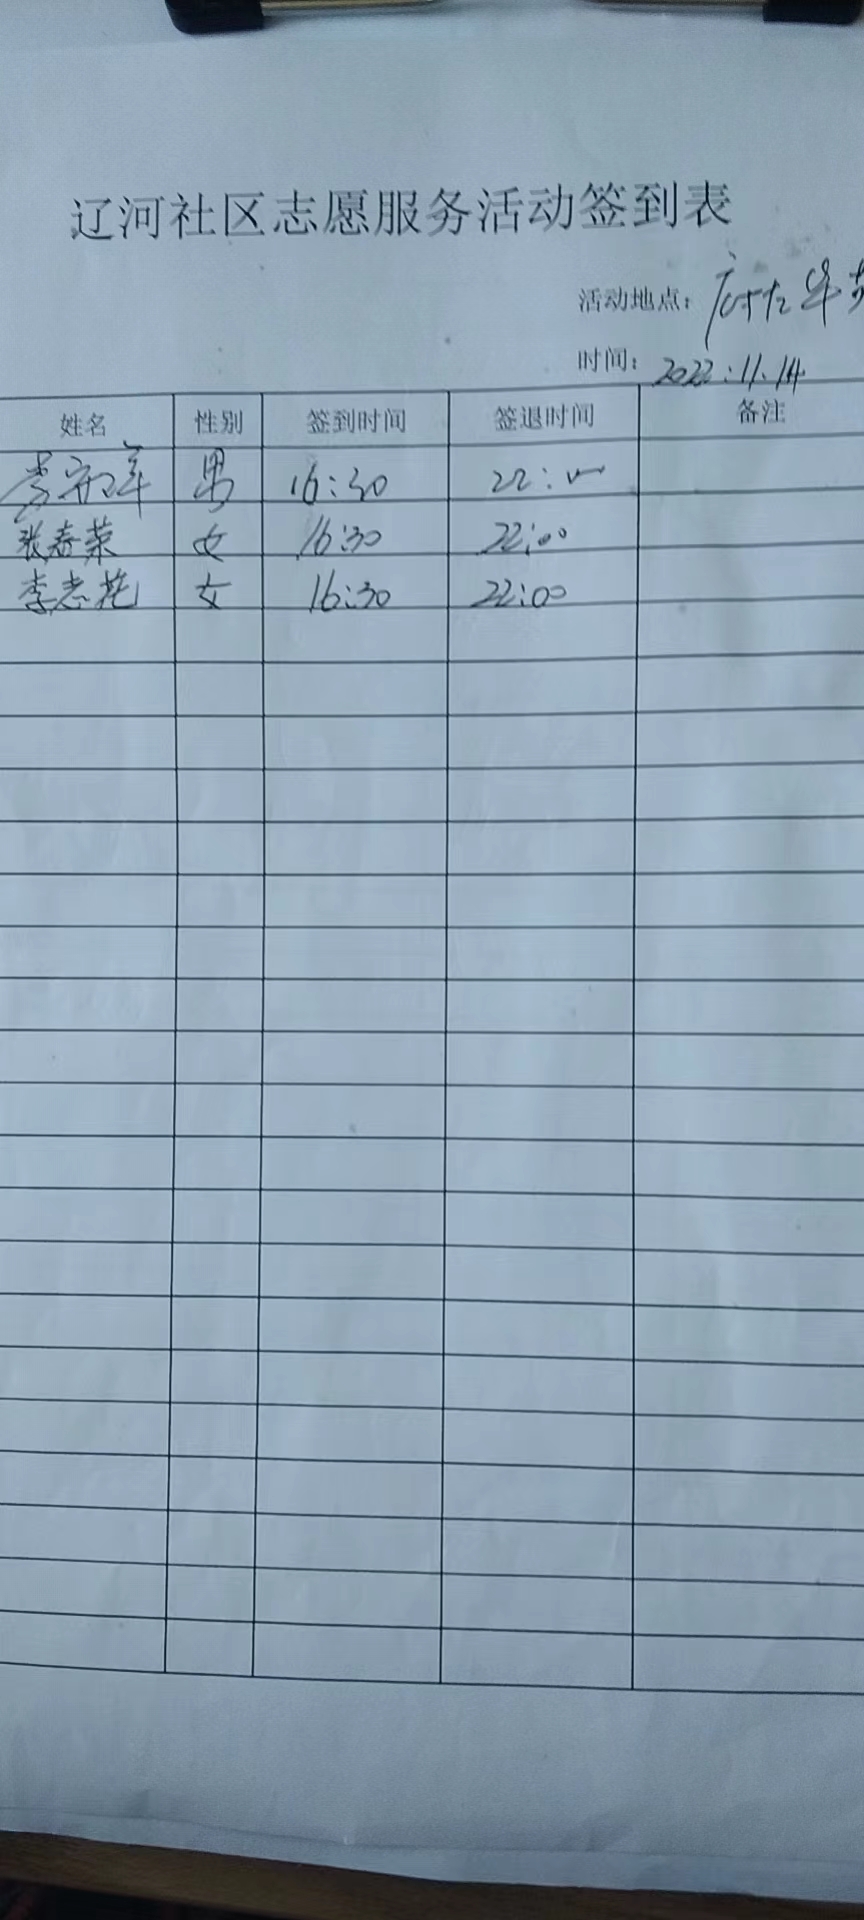 辽河社区志愿服务活动签到表
活动地点：
时间：2022.11.14
姓名 性别 签到时间 签退时间 备注
李 男 16:30 22:00
张春荣 女 16:30 22:00
李志花 女 16:30 22:00